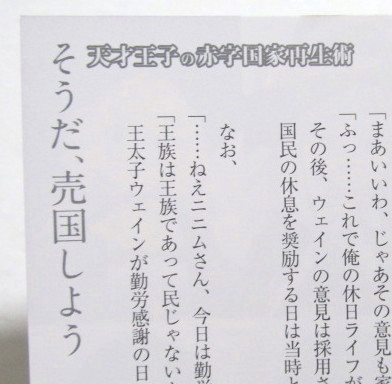 天才王子の赤字国家再生術
そうだ、売国しよう
「まあいいわ、じゃあその意見も
「ふっ……これで俺の休日ライフが
その後、ウェインの意見は採用さ
国民の休息を奨励する日は当時と
なお、
「……ねえニニムさん、今日は勤労
「王族は王族であって民じゃない
王太子ウェインが勤労感謝の日